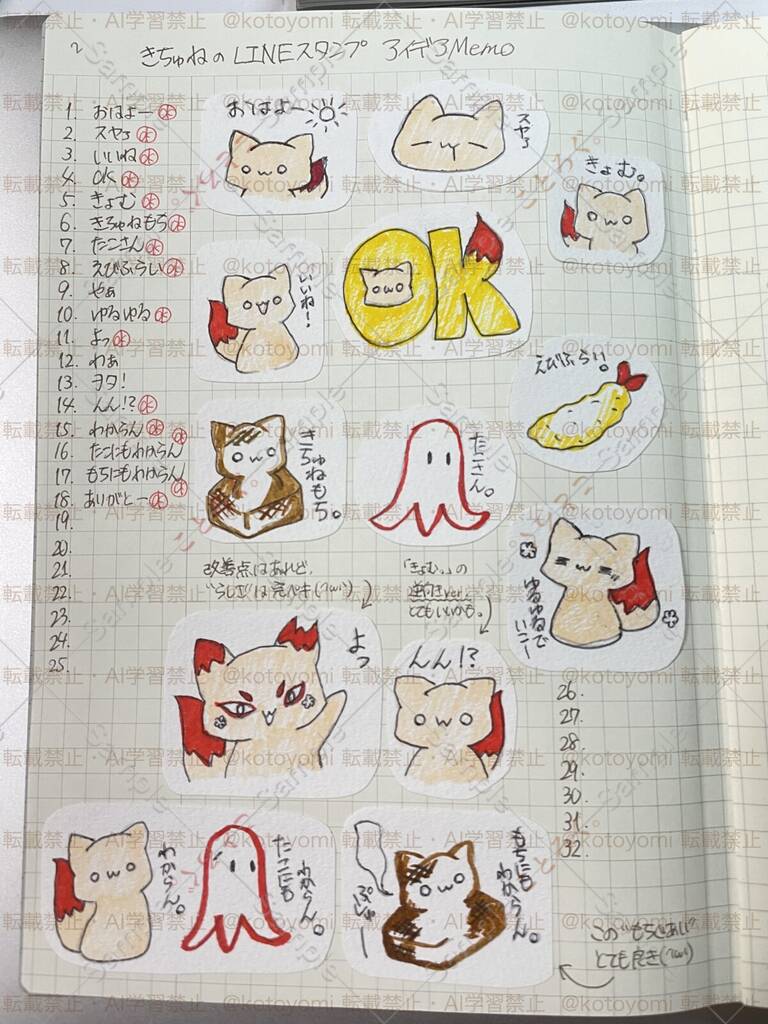 2
きちゅねの LINEスタンプ アイデアMemo
1. おはよー ㊌
2. スヤァ ㊌
3. いいね ㊌
4. OK ㊌
5. きょむ ㊌
6. きちゅねもち ㊌
7. たこさん ㊌
8. えびふらい ㊌
9. やぁ
10. ゆるゆる ㊌
11. よっ ㊌
12. わぁ
13. ヲタ!
14. んん!? ㊌
15. わからん ㊌
16. たこにもわからん ㊌
17. もちにもわからん ㊌
18. ありがとー ㊌
19.
20.
21
22.
23.
24.
25.
おはよー
スヤァ
きょむ。
いいね!
OK
えびふらい。
きちゅねもち。
たこさん。
ゆるゆるで
いこー
改善点はあれど、
"らしさ"は完ペキ
「きょむ。」の
逆向きver.
とてもいいかも。
よっ
んん!?
26.
27.
28.
29.
30.
31.
32.
わからん。
たこにも
わからん。
もちにも
わからん。
ぷしゅー
この"もちじあい"
とても良き
転載禁止・AI学習禁止 @kotoyomi
Sample